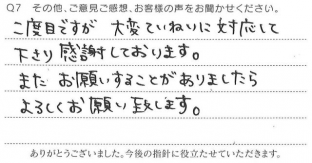 Q7 その他、ご意見ご感想、お客様の声をお聞かせください。
二度目ですが 大変ていねいに 対応して
下さり 感謝しております。
また お願いすることがありましたら
よろしくお願い致します。
ありがとうございました。今後の指針に役立たせていただきます。